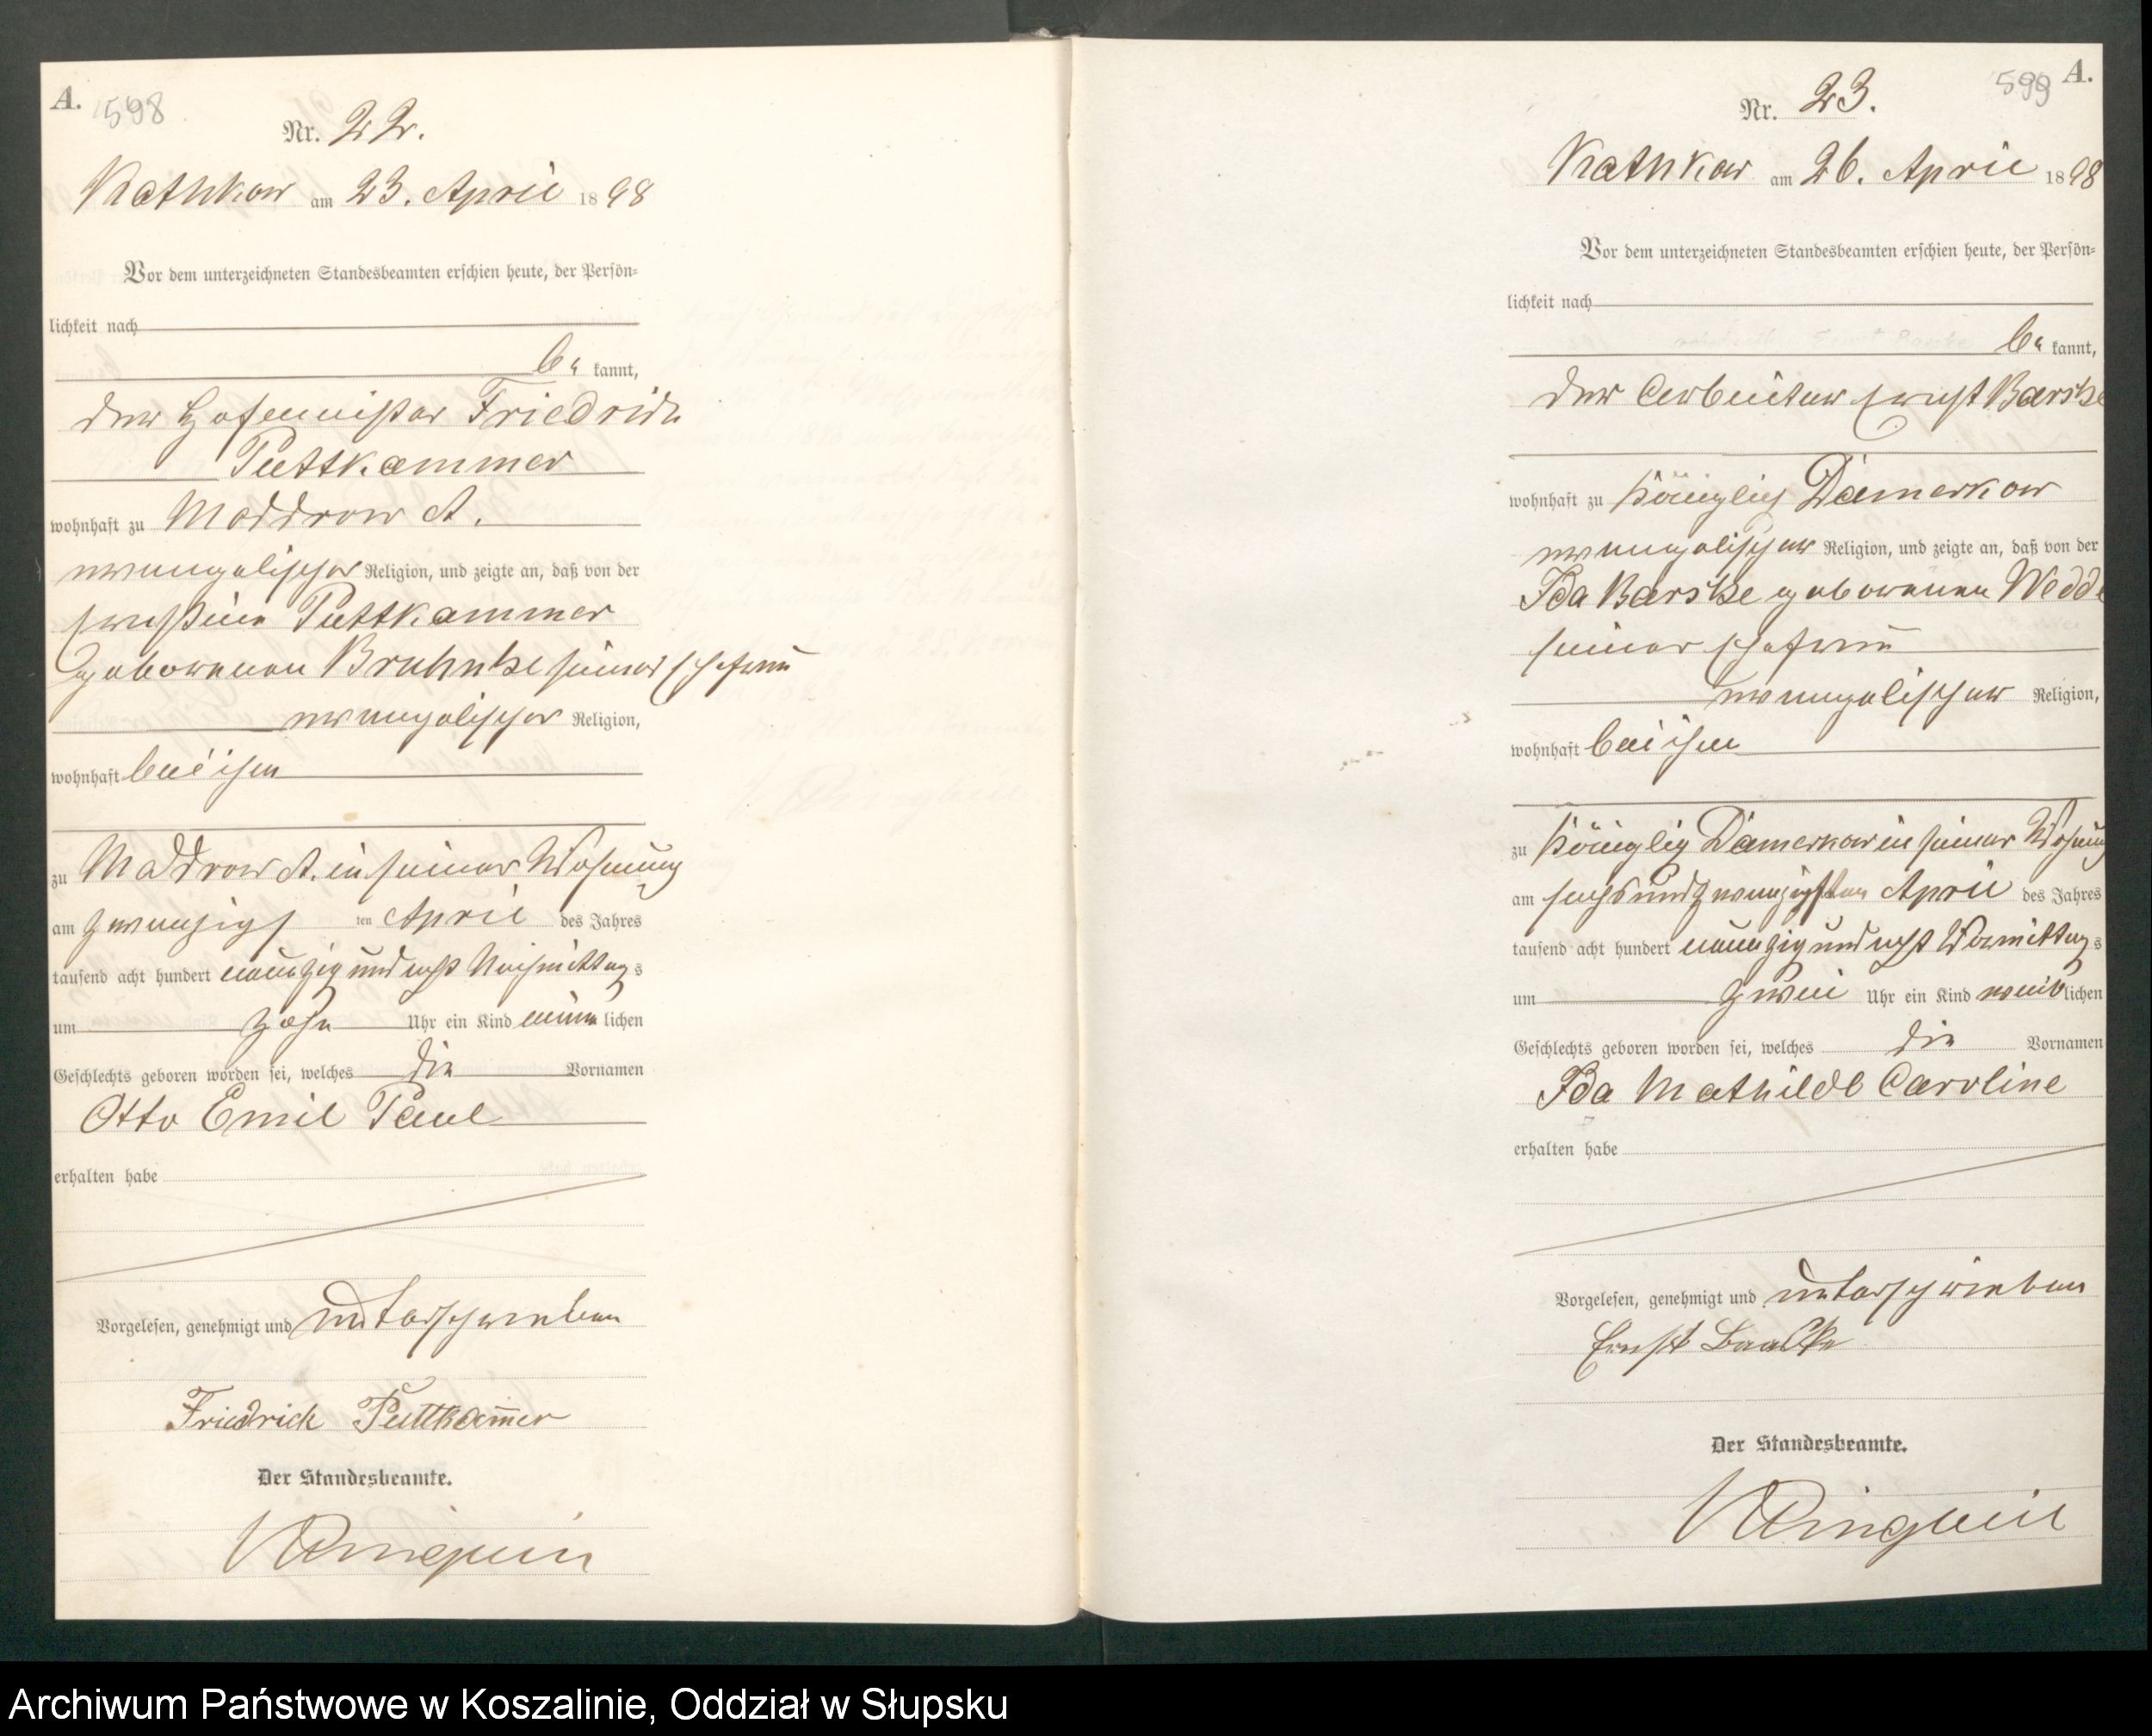 A.
598
Nr. 22.
Rathkow am 23. April 1898
Vor dem unterzeichneten Standesbeamten erschien heute, der Persön-
lichkeit nach
be kannt,
der Hofemeister Friedrich
Puttkammer
wohnhaft zu Moddrow A.
evangelischer Religion, und zeigte an, daß von der
Puttkammer
geborenen seiner Ehefrau
evangelischer Religion,
wohnhaft bei ihm
zu Moddrow A. in seiner Wohnung
am zwanzigs ten April des Jahres
tausend acht hundert neunzig und acht Nachmittag s
um zehn Uhr ein Kind männ lichen
Geschlechts geboren worden sei, welches die Vornamen
Otto Emil Paul
erhalten habe
Vorgelesen, genehmigt und unterschrieben
Friedrich Puttkam̅er
Der Standesbeamte.
599
A.
Nr. 23.
Rathkow am 26. April 1898
Vor dem unterzeichneten Standesbeamten erschien heute, der Persön-
lichkeit nach
be kannt,
der Arbeiter Ernst
wohnhaft zu Königlich Damerkow
evangelischer Religion, und zeigte an, daß von der
Ida geborenen
seiner Ehefrau
evangelischer Religion,
wohnhaft bei ihm
zu Königlich Damerkow in seiner Wohnung
am sechsundzwanzigsten April des Jahres
tausend acht hundert neunzig und acht Vormittag s
um zwei Uhr ein Kind weib lichen
Geschlechts geboren worden sei, welches die Vornamen
Ida Mathilde Caroline
erhalten habe
Vorgelesen, genehmigt und unterschrieben
Ernst
Der Standesbeamte.
Archiwum Państwowe w Koszalinie, Oddział w Słupsku